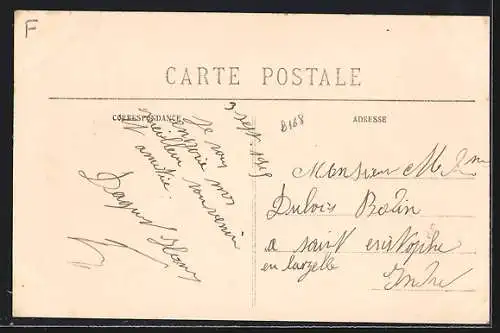 F
CARTE POSTALE
CORRESPONDANCE
ADRESSE
B168
9 sept. 1915
Je vous
envoie mon
meilleur souvenir
d'amitié.
Monsieur M Mm
Dubois Botin
a saint cristophe
en bazelle
Indre